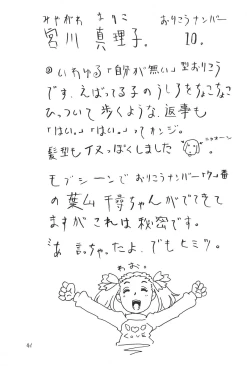 みやがわ まりこ おりこうナンバー
宮川 真理子. 10.
いわゆる「自分が無い」型おりこう
です。えばってる子のうしろをちょこちょこ
ひっついて歩くような。返事も
「はい。」「はい。」ってカンジ。
髪型もイヌっぽくしました
モブシーンでおりこうナンバー 番
の葉山 千尋ちゃんがでてきて
ますがこれは秘密です。
あ 言っちゃったよ。でもヒミツ。
わお。
LOVE